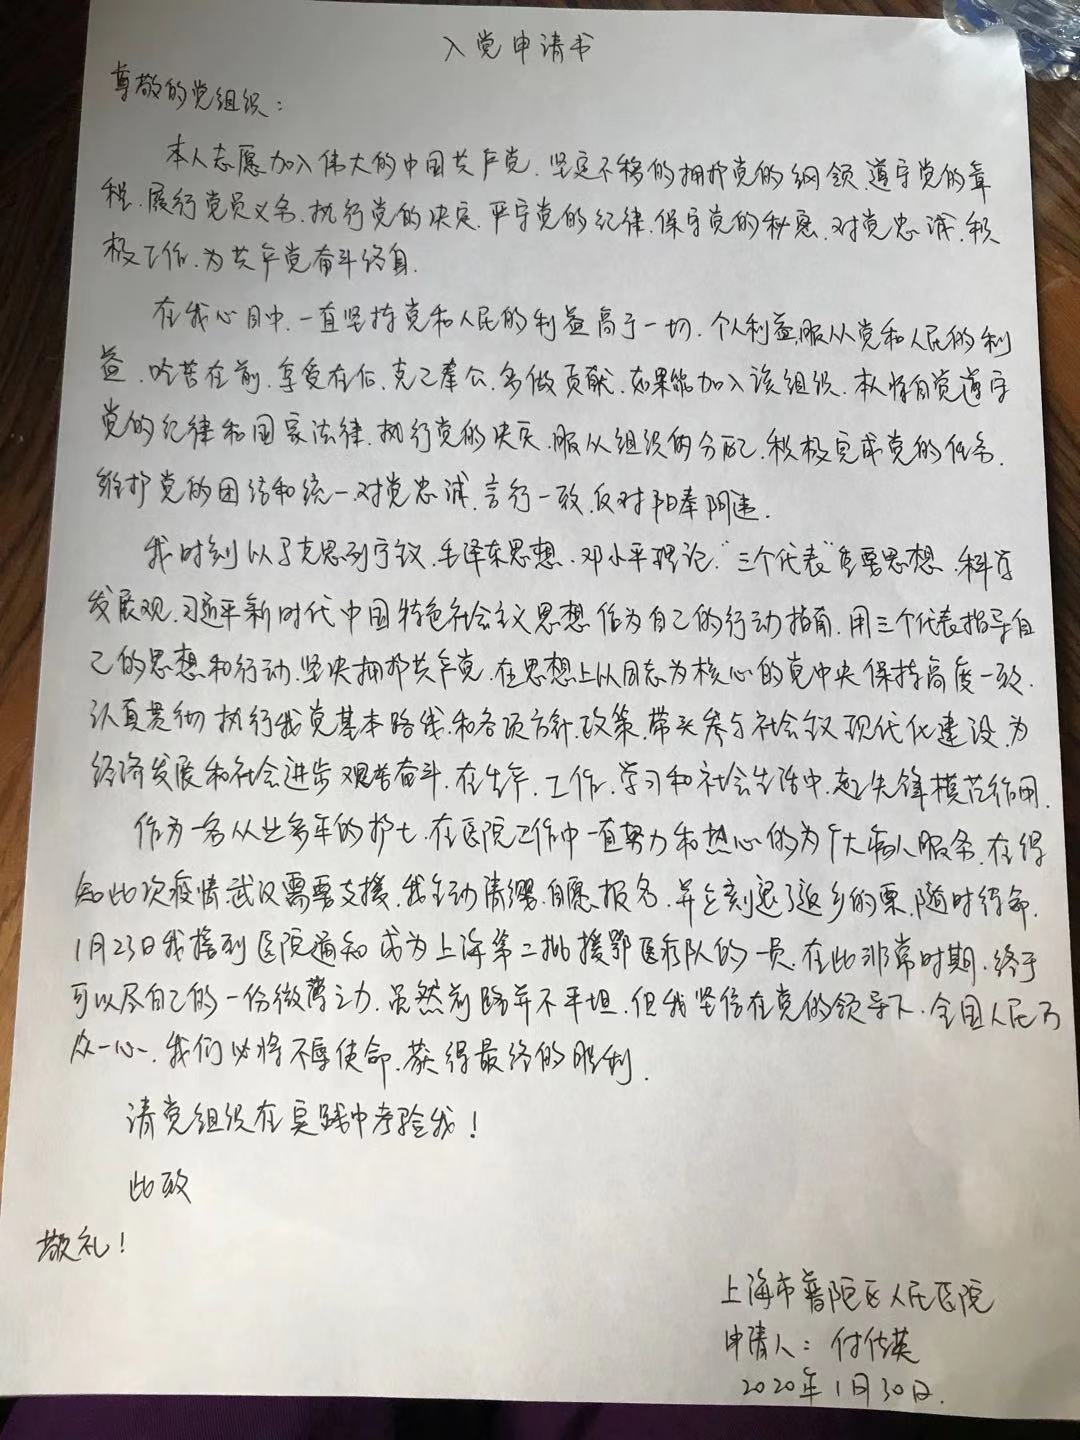 入党申请书
尊敬的党组织：
本人志愿加入伟大的中国共产党，坚定不移的拥护党的纲领，遵守党的章
程，履行党员义务，执行党的决定，严守党的纪律，保守党的秘密，对党忠诚，积
极工作，为共产党奋斗终身.
在我心目中，一直坚持党和人民的利益高于一切，个人利益服从党和人民的利
益，吃苦在前，享受在后，克己奉公，多做贡献，如果能加入该组织，本人将自觉遵守
党的纪律和国家法律，执行党的决定，服从组织的分配，积极完成党的任务，
维护党的团结和统一，对党忠诚，言行一致，反对阳奉阴违.
我时刻以马克思列宁主义、毛泽东思想、邓小平理论、“三个代表”重要思想、科学
发展观、习近平新时代中国特色社会主义思想作为自己的行动指南，用三个代表指导自
己的思想和行动，坚决拥护共产党，在思想上以同志为核心的党中央保持高度一致，
认真贯彻执行我党基本路线和各项方针、政策，带头参与社会主义现代化建设，为
经济发展和社会进步艰苦奋斗，在生产、工作、学习和社会生活中，起先锋模范作用.
作为一名从业多年的护士，在医院工作中一直努力和热心的为广大病人服务，在得
知此次疫情武汉需要支援，我主动请缨，自愿报名，并立刻退了返乡的票，随时待命，
1月23日我接到医院通知成为上海第二批援鄂医疗队的一员，在此非常时期，终于
可以尽自己的一份微薄之力，虽然前路并不平坦，但我坚信在党的领导下，全国人民万
众一心，我们必将不辱使命，获得最终的胜利.
请党组织在实践中考验我！
此致
敬礼！
上海市普陀区人民医院
申请人：付佐英
2020年1月30日.